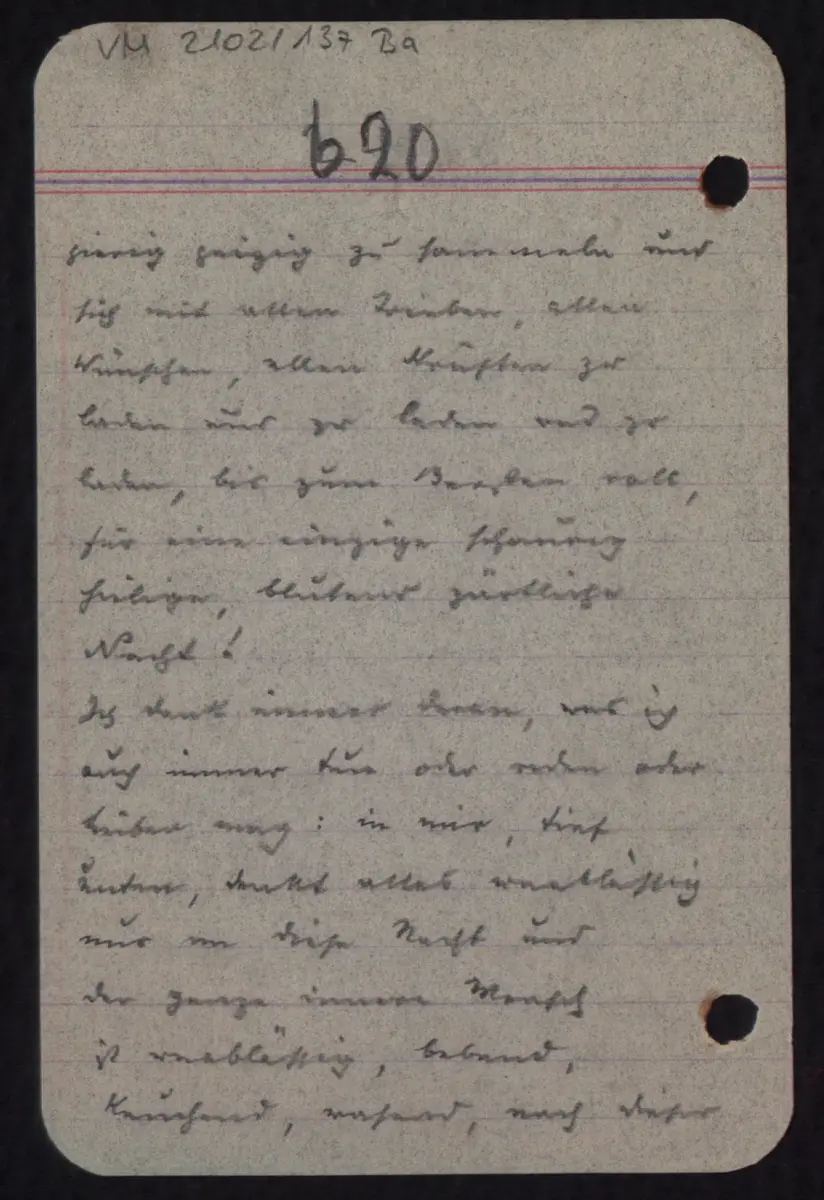 VM 2102/137 Ba
620
gierig geizig zu sammeln und
sich mit allen Trieben, allen
Wünschen, allen Kräften zu
laden und zu laden und zu
laden, bis zum Bersten voll,
für eine einzige schaurig
heilige, blutend zärtliche
Nacht!
Ich denk immer daran, was ich
auch immer tun oder reden oder
treiben mag: in mir, tief
unten, denkt alles unablässig
nur an diese Nacht und
der ganze innere Mensch
ist unablässig, bebend,
keuchend, rasend, nach dieser